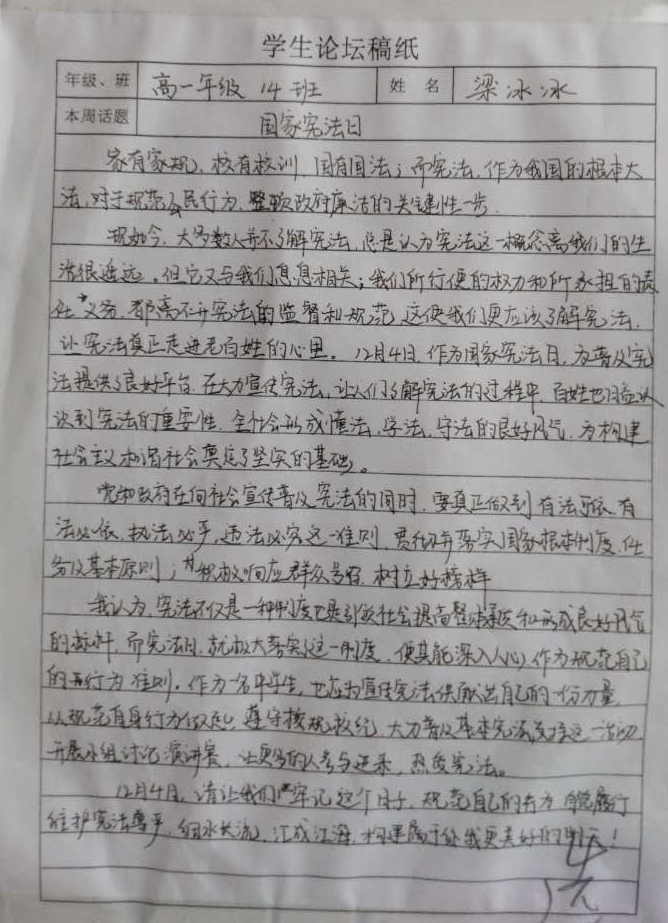 学生论坛稿纸
年级、班 高一年级 14班 姓 名 梁冰冰
本周话题 国家宪法日
家有家规、校有校训、国有国法；而宪法，作为我国的根本大
法，对于规范公民行为，整顿政府廉洁的关键性一步
现如今，大多数人并不了解宪法，总是认为宪法这一概念离我们的生
活很遥远，但它又与我们息息相关；我们所行使的权力和所承担的责
任义务，都离不开宪法的监督和规范，这使我们更应该了解宪法，
让宪法真正走进老百姓的心里。12月4日，作为国家宪法日，为普及宪
法提供了良好平台，在大力宣传宪法，让人们了解宪法的过程中，百姓也日益认
识到宪法的重要性，全社会形成懂法、学法、守法的良好风气，为构建
社会主义和谐社会奠定了坚实的基础。
党和政府在向社会宣传普及宪法的同时，要真正做到有法可依、有
法必依、执法必严、违法必究这一准则，贯彻并落实国家根本制度、任
务及基本原则；积极响应群众号召，树立好榜样
我认为，宪法不仅是一种制度也是引领社会提高整体素质和形成良好风气
的标杆，而宪法日，就极大落实这一制度，使其能深入人心，作为规范自己
的行为准则。作为一名中学生，也应为宣传宪法贡献出自己的一份力量，
从规范自身行为做起，遵守校规校纪，大力普及基本宪法支持这一活动
开展小组讨论演讲赛，让更多的人参与进来，热爱宪法。
12月4日，请让我们牢记这个日子，规范自己的行为，自觉履行
维护宪法尊严，细水长流，汇成江海，构建属于你我更美好的明天！